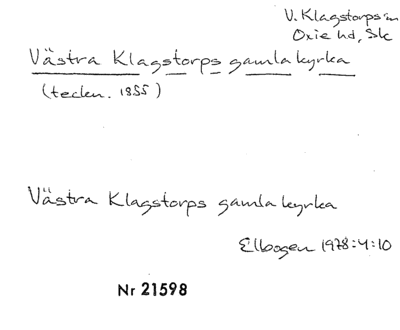 V. Klagstorps sn
Oxie hd, Sk
Västra Klagstorps gamla kyrka
(tecken. 1855)
Västra Klagstorps gamla kyrka
Elbogen 1978:4:10
Nr 21598